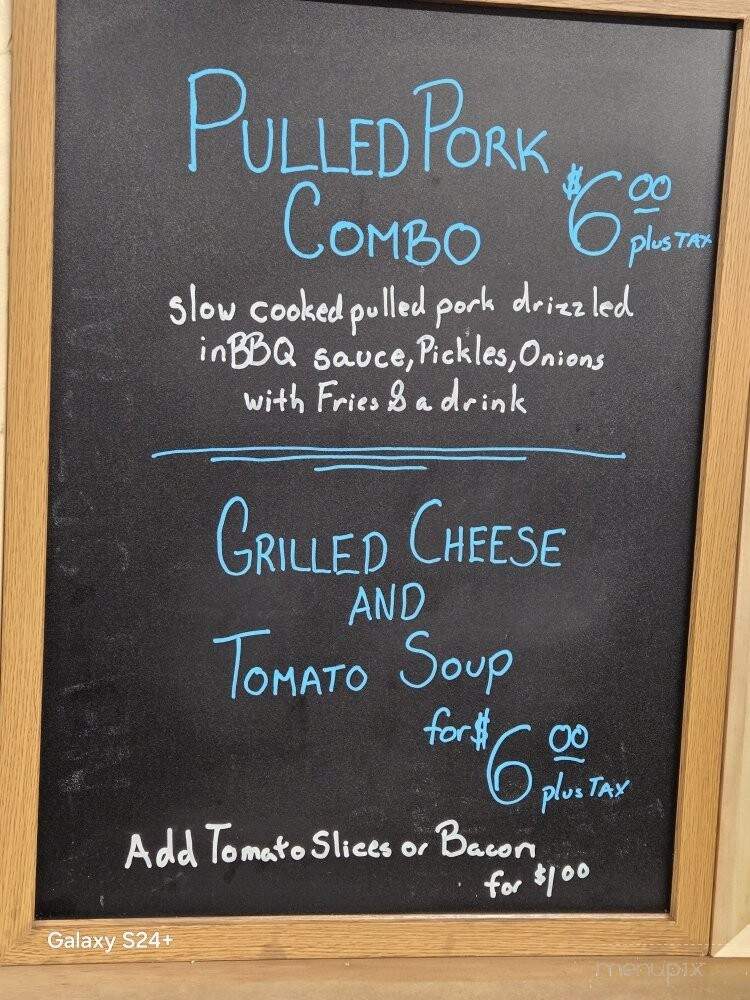 PULLED PORK
COMBO
$6.00
plus TAX
slow cooked pulled pork drizzled
in BBQ sauce, Pickles, Onions
with Fries & a drink
GRILLED CHEESE
AND
TOMATO SOUP
for $6.00
plus TAX
Add Tomato Slices or Bacon
for $1.00
Galaxy S24+
menupix